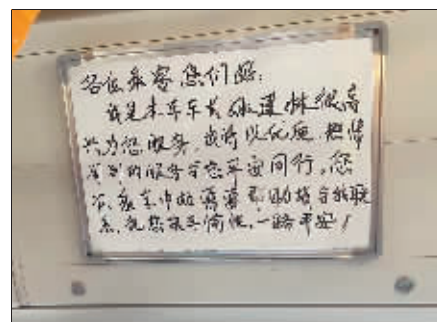 各位乘客您们好:
我是本车车长 很高
兴为您服务,我将以优质、热情
周到的服务与您平安同行,您
在乘车中如需 帮助请与我联
系,祝您乘车愉快,一路平安!